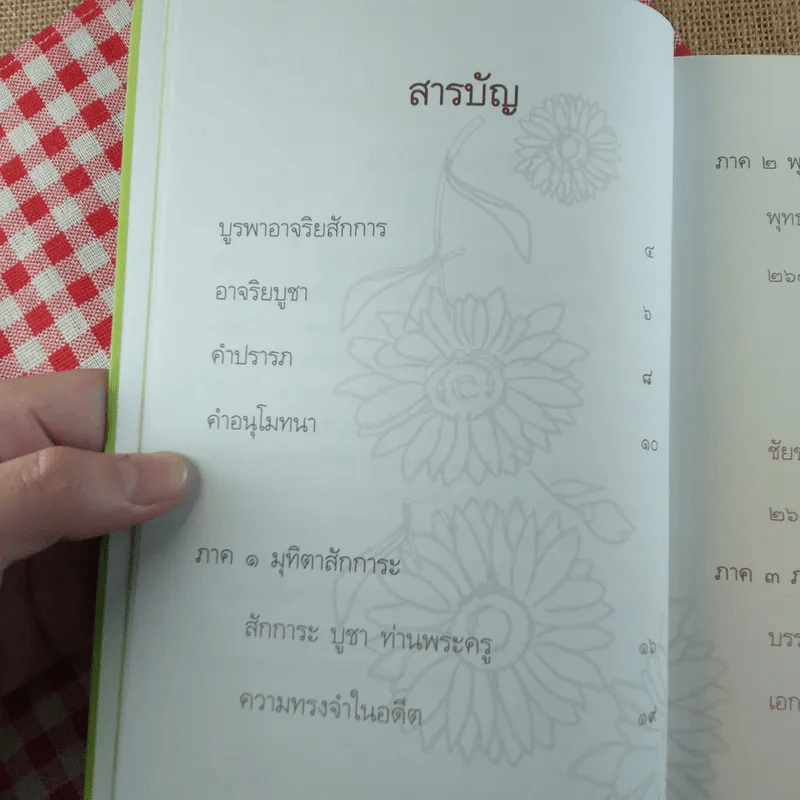 สารบัญ
บูรพาอาจริยสักการ ๔
อาจริยบูชา ๖
คำปรารภ ๘
คำอนุโมทนา ๑๐
ภาค ๑ มุทิตาสักการะ
สักการะ บูชา ท่านพระครู ๑๖
ความทรงจำในอดีต ๑๙
ภาค ๒
ภาค ๓